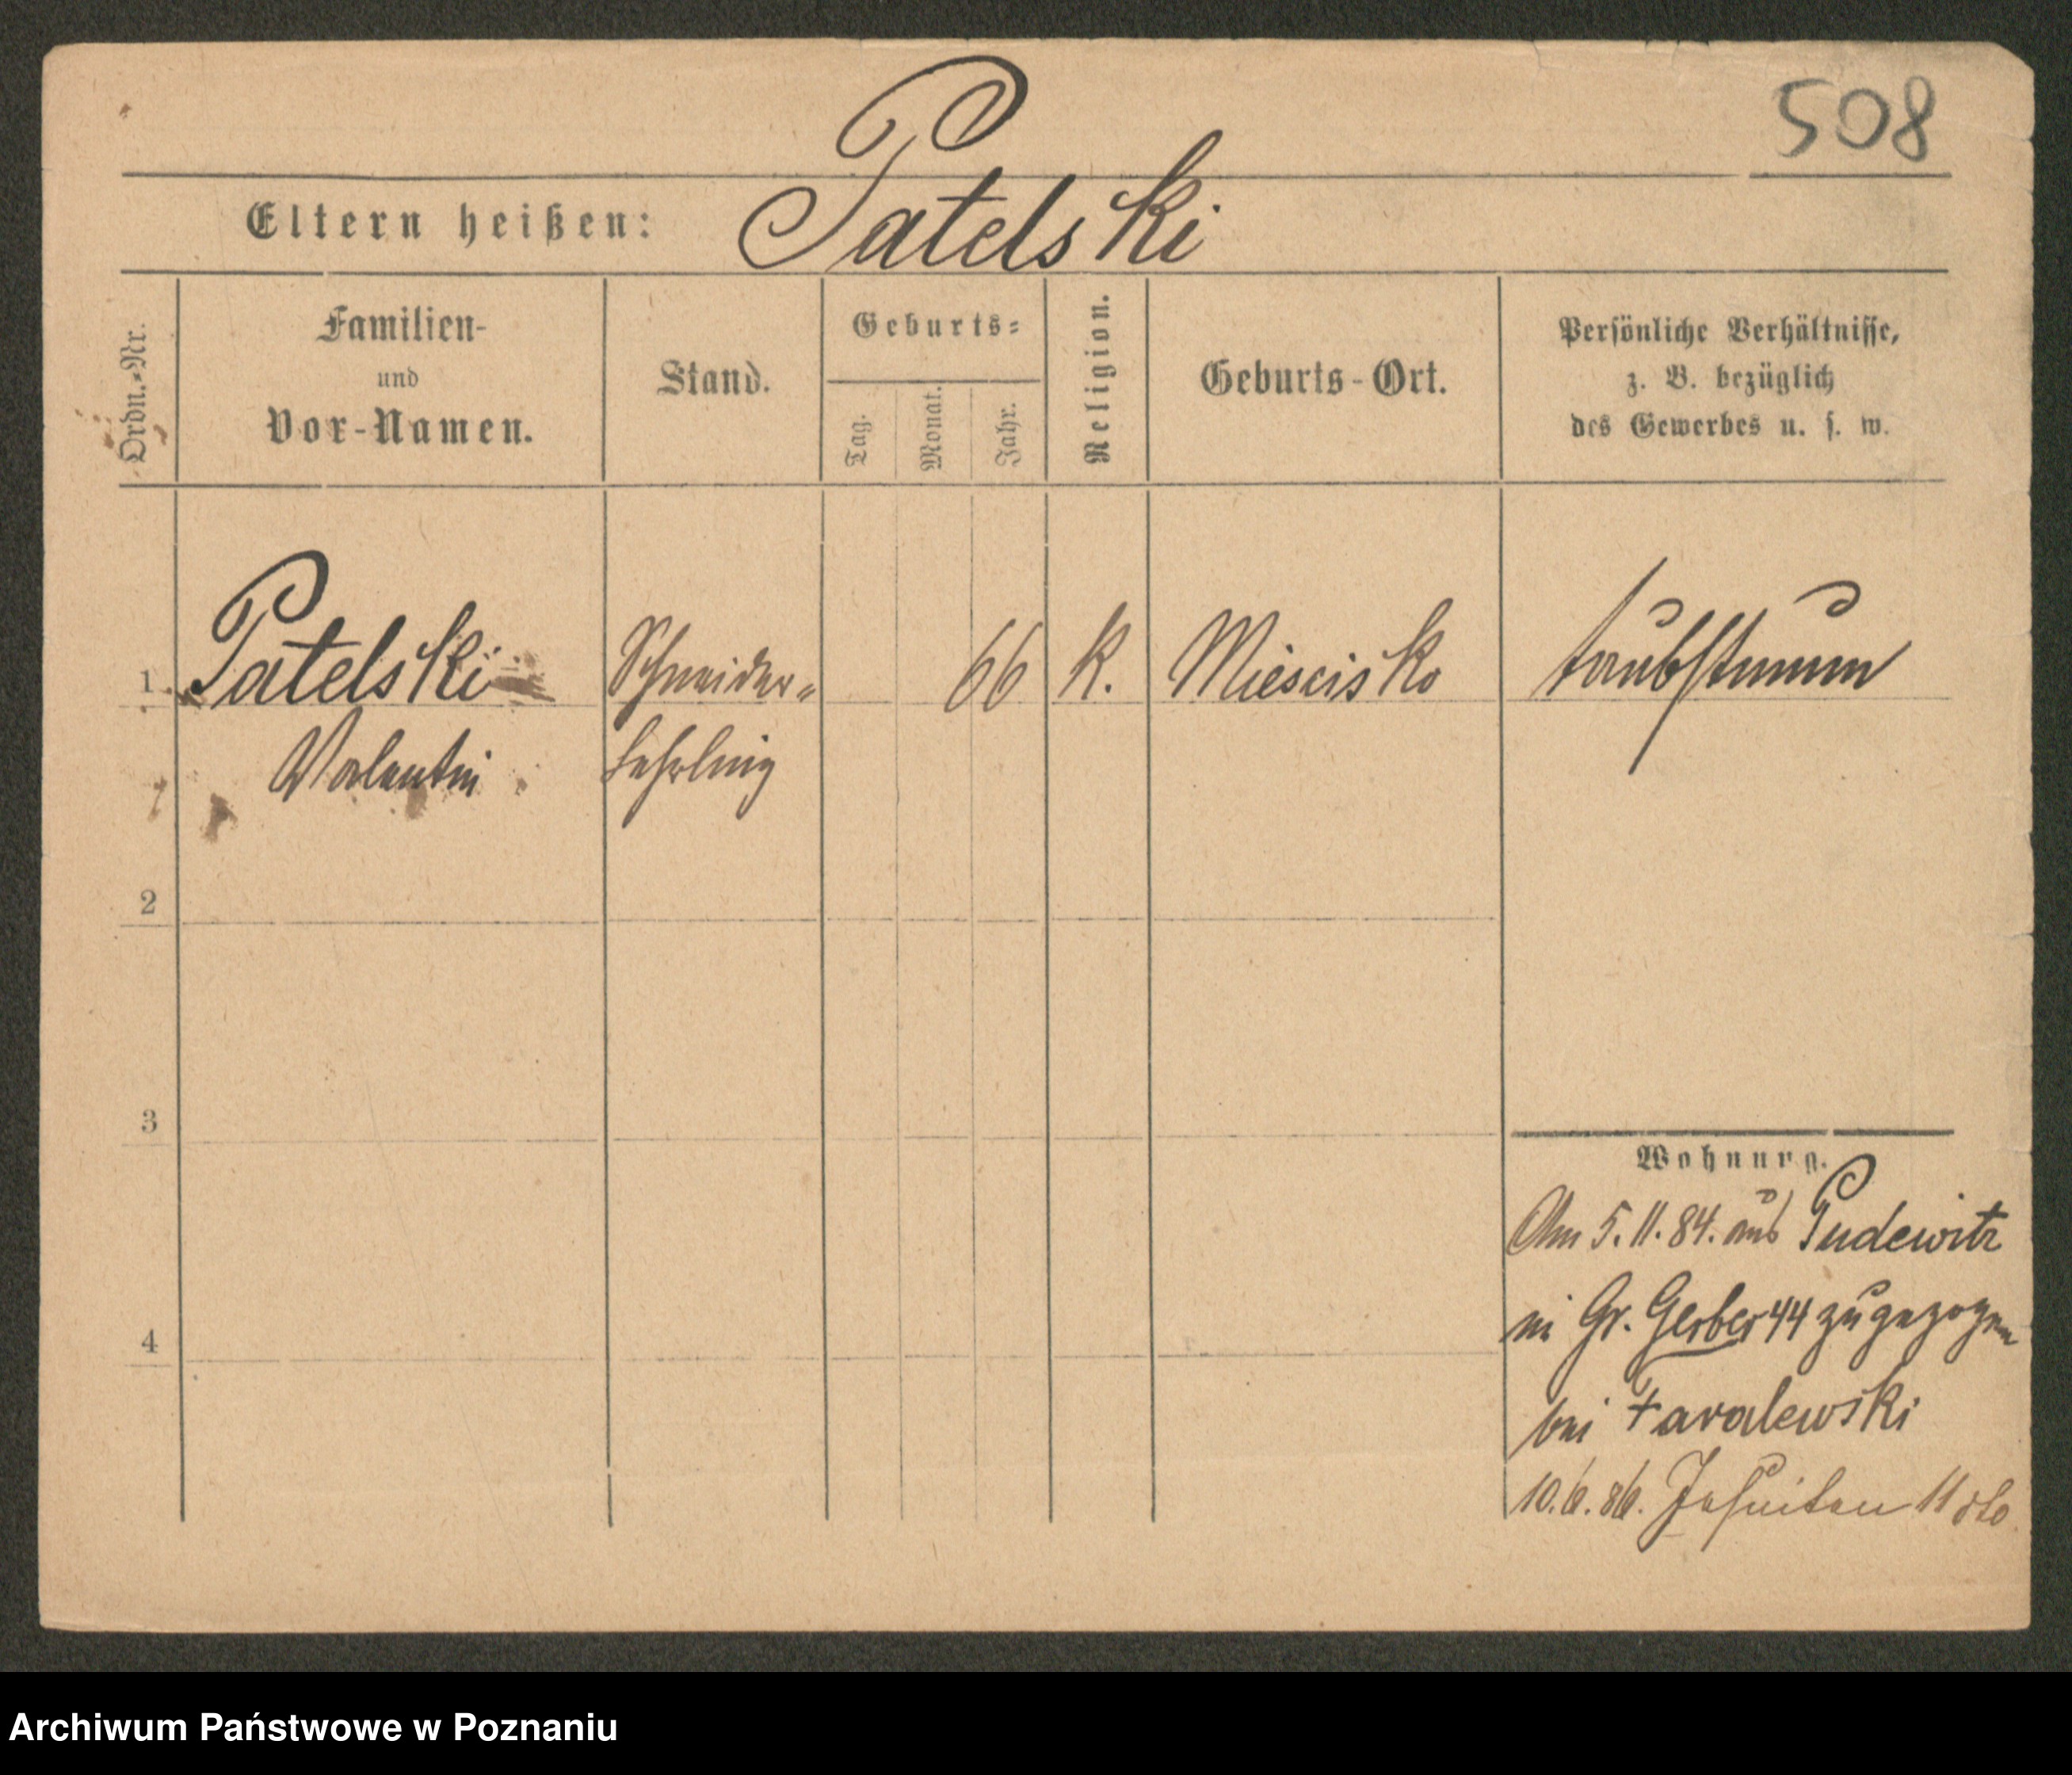 508
Eltern heißen: Patelski
Ordn.-Nr.
Familien-
und
Vor-Namen.
Stand.
Geburts-
Tag.
Monat.
Jahr.
Religion.
Geburts-Ort.
Persönliche Verhältnisse,
z. B. bezüglich
des Gewerbes u. s. w.
1 Patelski Schneider- 66 K. Miescisko taubstumm
Valentin Lehrling
2
3
4
Wohnung.
Am 5.11.84. aus Pudewitz
in Gr. Gerber 44 zugezogen
bei
10.6.86. Jesuiten 11 dto
Archiwum Państwowe w Poznaniu